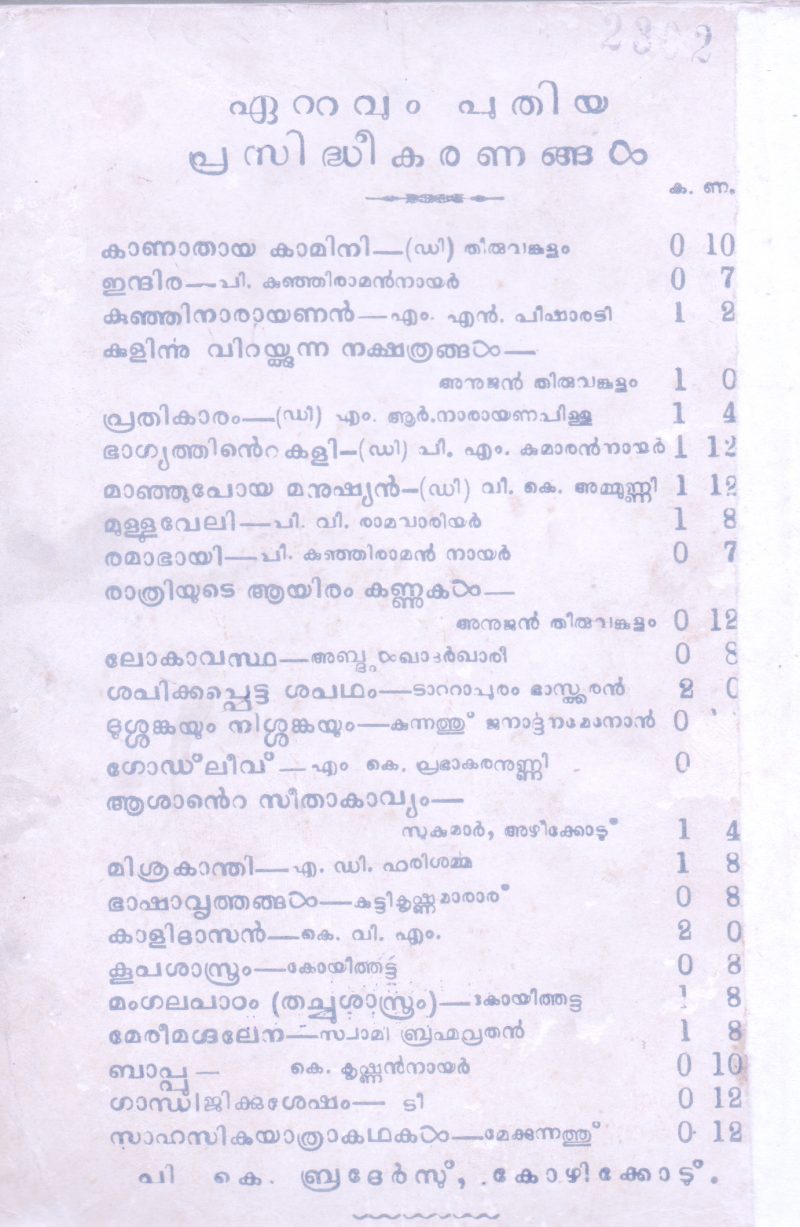 2302
ഏററവും പുതിയ
പ്രസിദ്ധീകരണങ്ങൾ
ക. ണ.
കാണാതായ കാമിനി—(ഡി) തിരുവങ്കുളം 0 10
ഇന്ദിര—പി. കുഞ്ഞിരാമൻനായർ 0 7
കുഞ്ഞിനാരായണൻ—എം. എൻ. പിഷാരടി 1 2
കുളിന്നു വിറയ്ക്കുന്ന നക്ഷത്രങ്ങൾ—
അനുജൻ തിരുവങ്കുളം 1 0
പ്രതികാരം—(ഡി) എം. ആർ.നാരായണപിള്ള 1 4
ഭാഗ്യത്തിൻെറകളി—(ഡി) പി. എം. കുമാരൻനായർ 1 12
മാഞ്ഞുപോയ മനുഷ്യൻ—(ഡി) വി. കെ. അമ്മുണ്ണി 1 12
മുള്ളുവേലി—പി. വി. രാമവാരിയർ 1 8
രമാഭായി—പി. കുഞ്ഞിരാമൻ നായർ 0 7
രാത്രിയുടെ ആയിരം കണ്ണുകൾ—
അനുജൻ തിരുവങ്കുളം 0 12
ലോകാവസ്ഥ— 0 8
ശപിക്കപ്പെട്ട ശപഥം—ടാററാപുരം ഭാസ്ക്കരൻ 2 0
ദുശ്ശങ്കയും നിശ്ശങ്കയും—കുന്നത്തു് ജനാർദ്ദനമേനോൻ 0
ഗോഡ്‌ലീവ് — എം കെ. പ്രഭാകരനുണ്ണി 0
ആശാൻെറ സീതാകാവ്യം—
സുകുമാർ, അഴീക്കോടു് 1 4
മിശ്രകാന്തി—എ. ഡി. ഹരിശർമ്മ 1 8
ഭാഷാവൃത്തങ്ങൾ—കുട്ടികൃഷ്ണമാരാര് 0 8
കാളിദാസൻ—കെ. വി. എം. 2 0
കൂപശാസ്ത്രം—കോയിത്തട്ട 0 8
മംഗലപാഠം (തച്ചുശാസ്ത്രം)—കോയിത്തട്ട 1 8
മേരീമഗ്ദലേന—സ്വാമി ബ്രഹ്മവ്രതൻ 1 8
ബാപ്പു — കെ. കൃഷ്ണൻനായർ 0 10
ഗാന്ധിജിക്കുശേഷം— ടി 0 12
സാഹസികയാത്രാകഥകൾ—മേക്കുന്നത്തു് 0 12
പി കെ. ബ്രദേർസു്, കോഴിക്കോടു്.